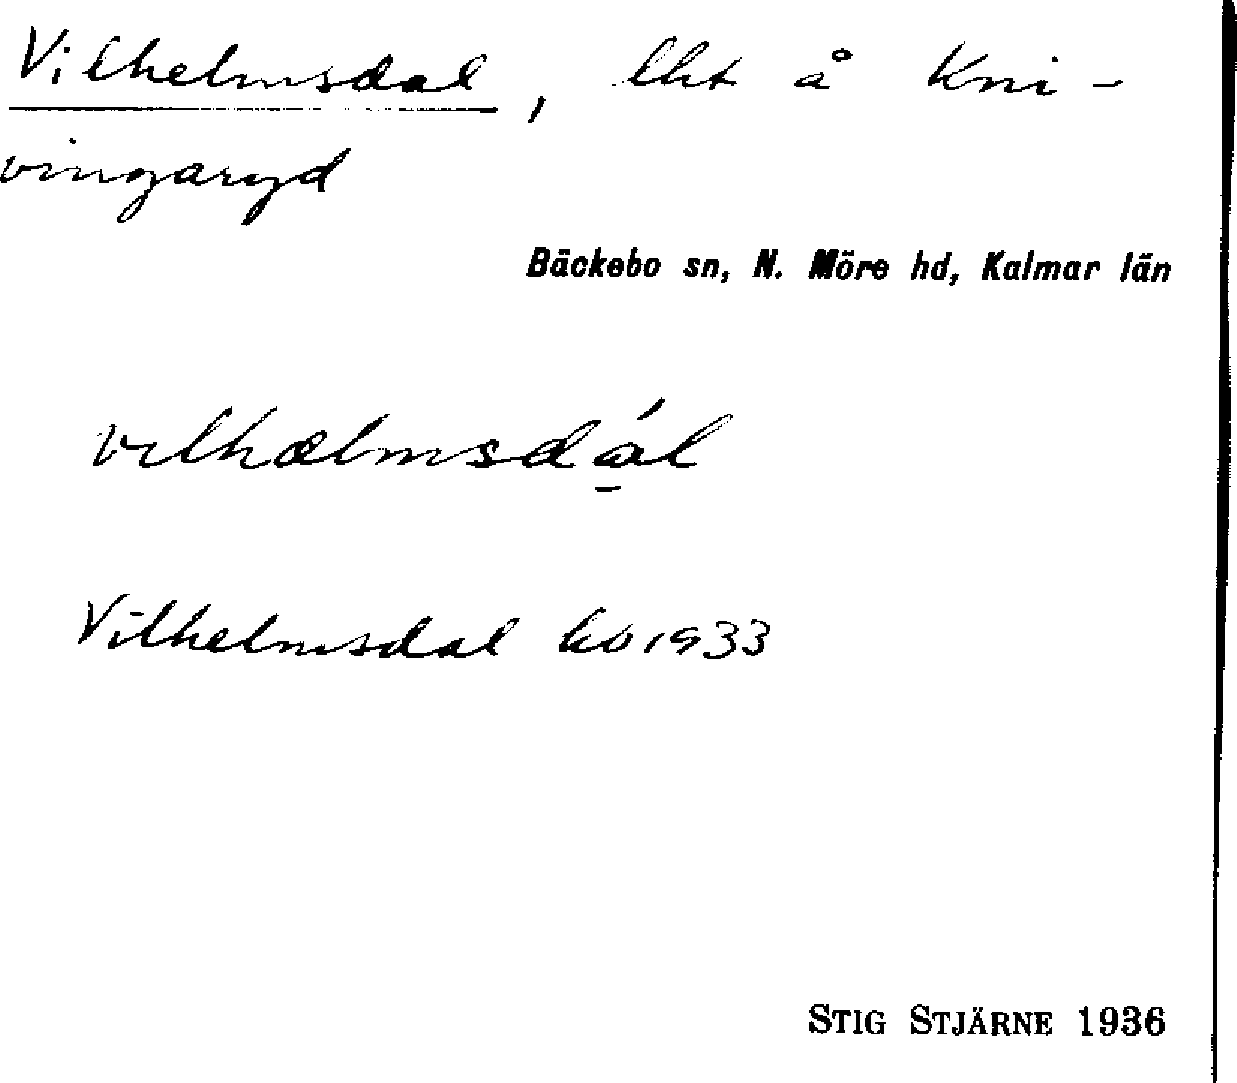 Vilhelmsdal, lht å Kni-
vingaryd
Bäckebo sn, N. Möre hd, Kalmar län
vilhælmsdál
Vilhelmsdal kb 1933
STIG STJÄRNE 1936